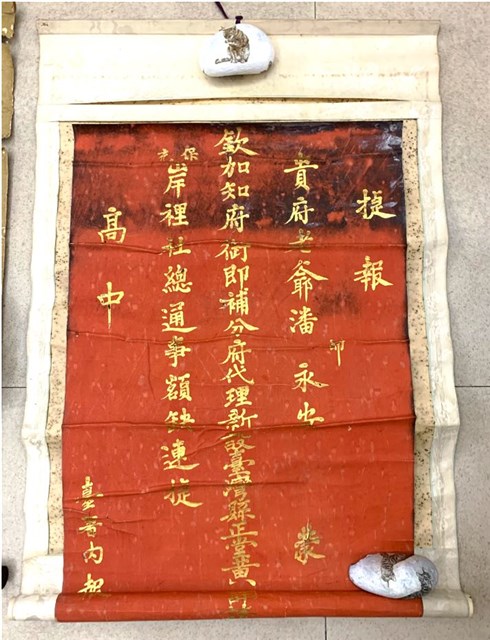 捷報
貴府老爺潘 印 永安 蒙
欽加知府銜即補分府代理新設臺灣縣正堂黃
保充
岸裡社總通事額缺連捷
高中
報